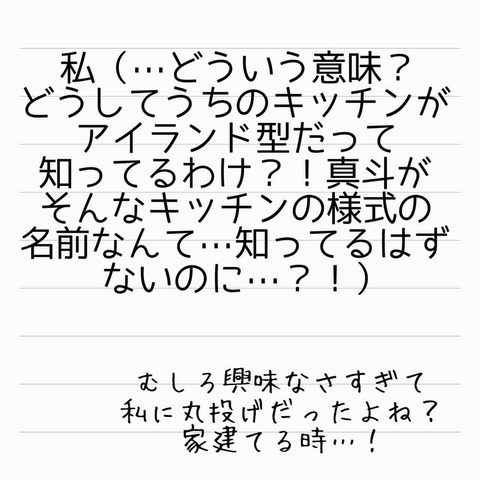 私（…どういう意味？
どうしてうちのキッチンが
アイランド型だって
知ってるわけ？！真斗が
そんなキッチンの様式の
名前なんて…知ってるはず
ないのに…？！）
むしろ興味なさすぎて
私に丸投げだったよね？
家建てる時…！